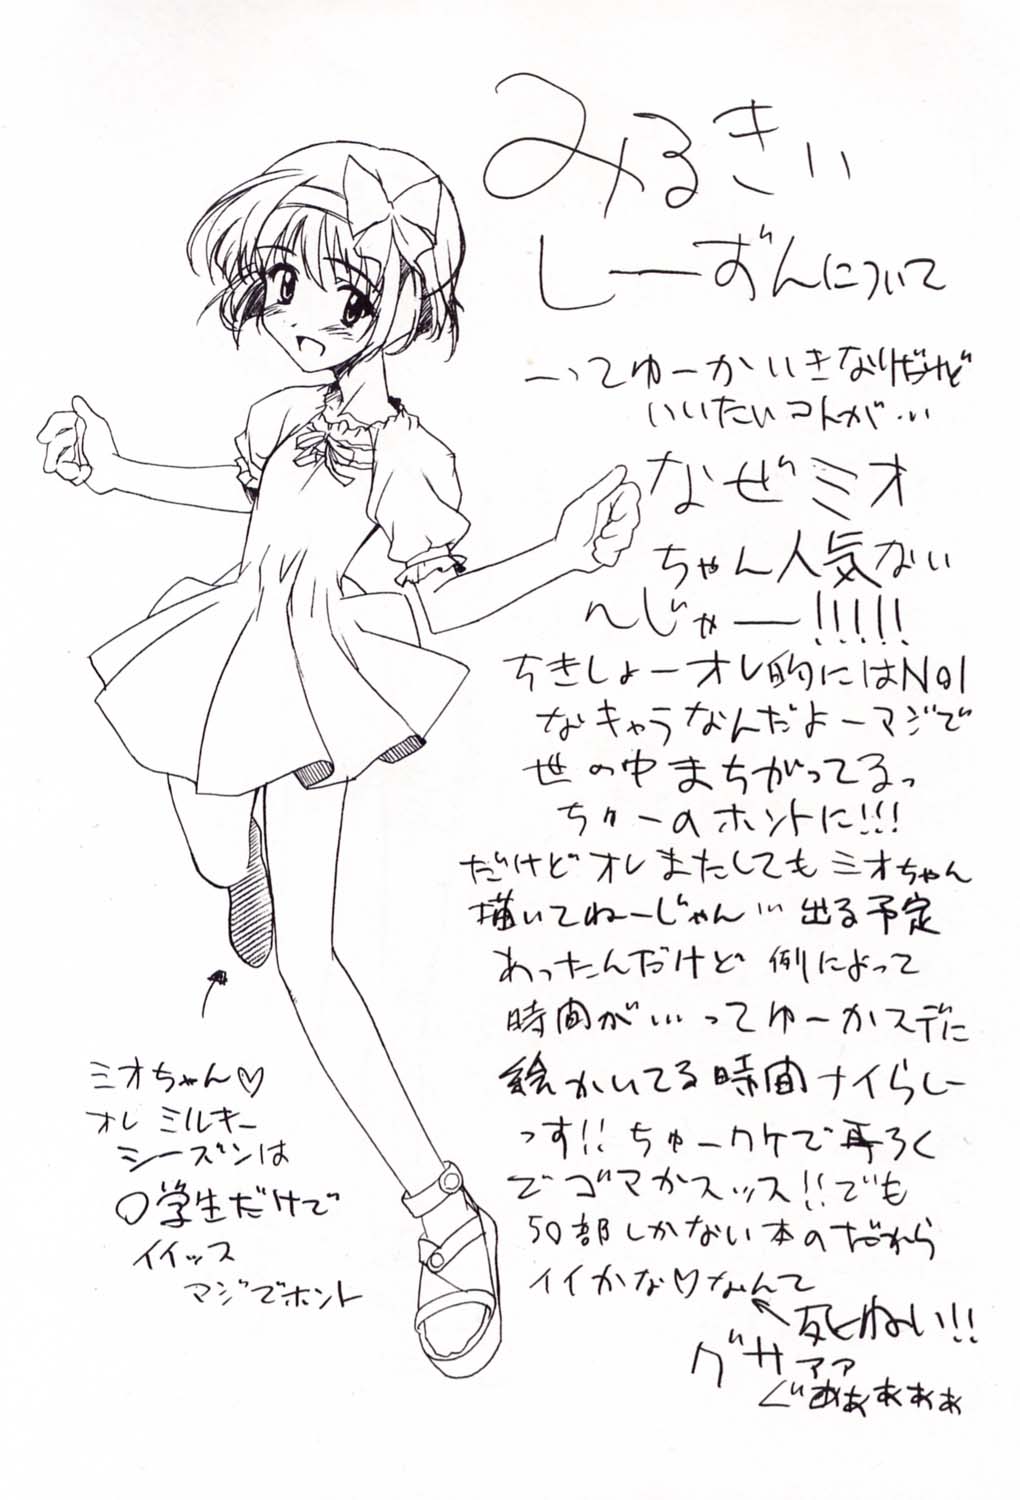 みるきぃ
しーずんについて
―ってゆーかいきなりだけど
いいたいコトが…
なぜミオ
ちゃん人気ない
んじゃー!!!!!
ちきしょーオレ的にはNo1
なキャラなんだよーマジで
世の中まちがってるっ
ちゅーのホントに!!!
だけどオレまたしてもミオちゃん
描いてねーじゃん…出る予定
あったんだけど 例によって
時間が…ってゆーかスデに
絵かいてる時間ナイらしー
っす!!ちゅーワケで再ろく
でゴマかスッス!!でも
50部しかない本のだから
イイかな♡なんて
死ねい!!
グサァァ
ぐあぁぁぁぁ
ミオちゃん♡
オレ ミルキー
シーズンは
○学生だけで
イイッス
マジでホント